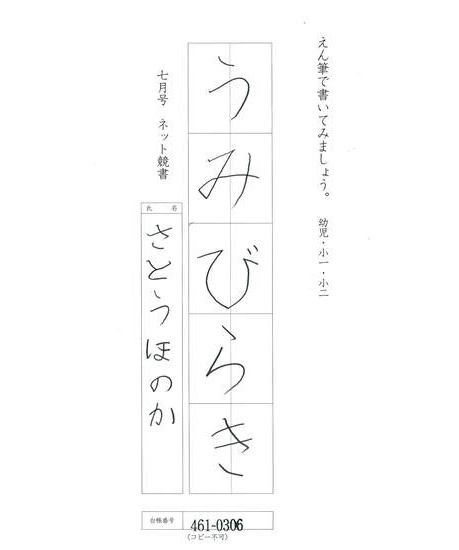 えん筆で書いてみましょう。　幼児・小一・小二
うみびらき
七月号　ネット競書
氏　名
さとうほのか
台帳番号
461-0306
(コピー不可)